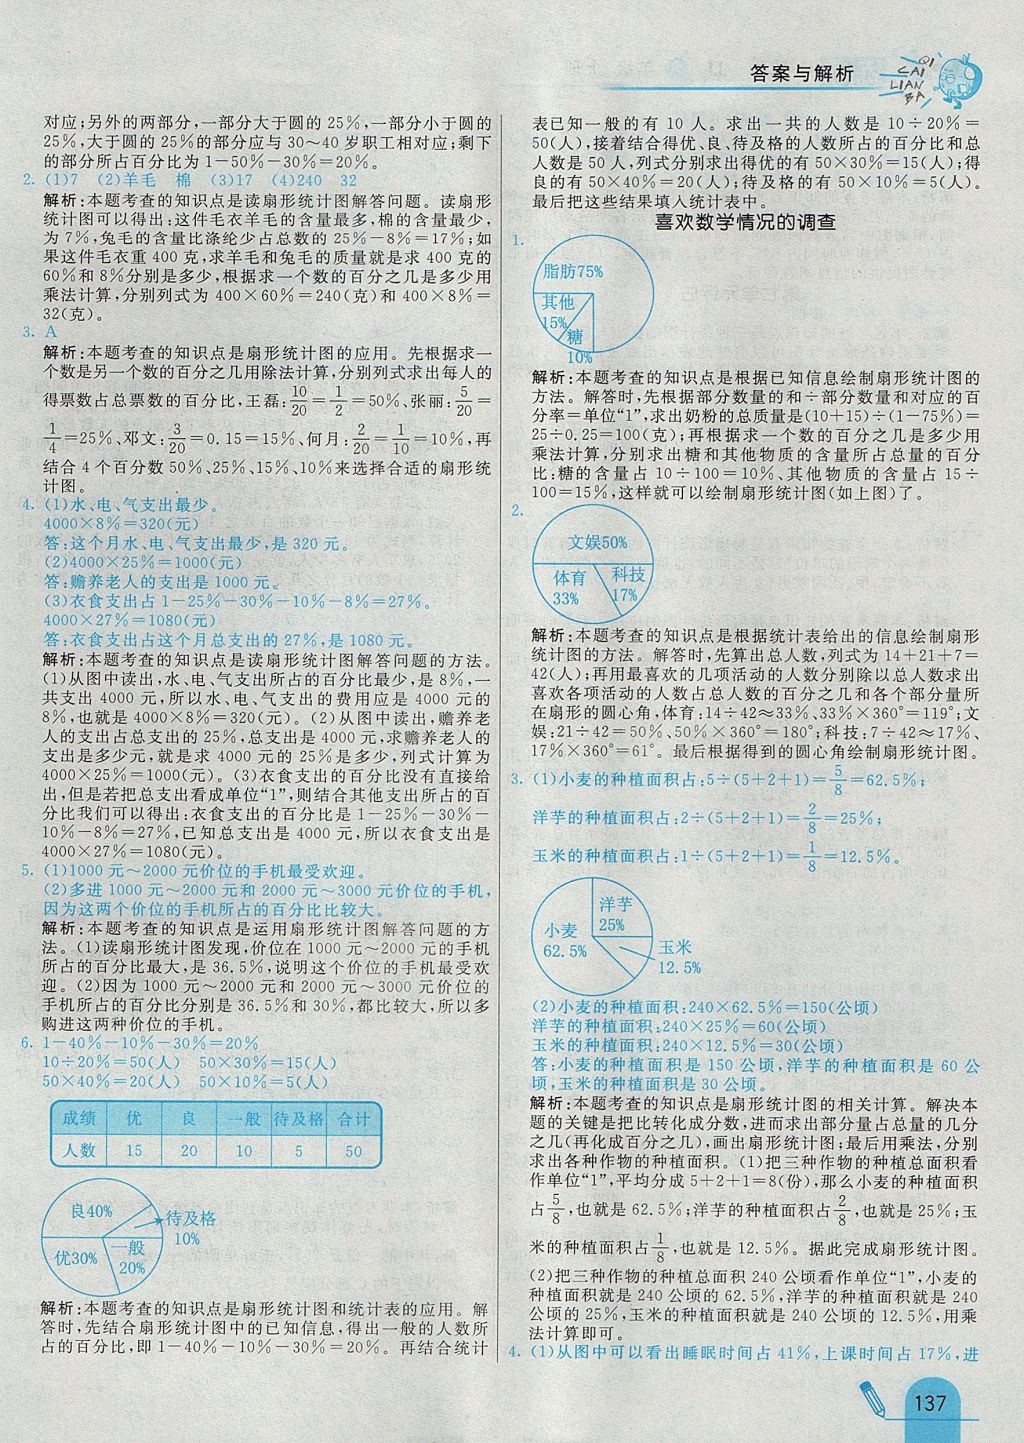 答案与解析
QI
CAI
LIAN
BA
对应;另外的两部分,一部分大于圆的25%,一部分小于圆的
25%,大于圆的25%的部分应与30～40岁职工相对应;剩下
的部分所占百分比为1-50%-30%=20%。
2. (1)7 (2)羊毛 棉 (3)17 (4)240 32
解析:本题考查的知识点是读扇形统计图解答问题。读扇形
统计图可以得出:这件毛衣羊毛的含量最多,棉的含量最少,
为7%,兔毛的含量比涤纶少占总数的25%-8%=17%;如
果这件毛衣重400克,求羊毛和兔毛的质量就是求400克的
60%和8%分别是多少,根据求一个数的百分之几是多少用
乘法计算,分别列式为400×60%=240(克)和400×8%=
32(克)。
3. A
解析:本题考查的知识点是扇形统计图的应用。先根据求一
个数是另一个数的百分之几用除法计算,分别列式求出每人的
得票数占总票数的百分比,王磊:10/20=1/2=50%、张丽:5/20=
1/4=25%、邓文:3/20=0.15=15%、何月:2/20=1/10=10%,再
结合4个百分数50%、25%、15%、10%来选择合适的扇形统
计图。
4. (1)水、电、气支出最少。
4000×8%=320(元)
答:这个月水、电、气支出最少,是320元。
(2)4000×25%=1000(元)
答:赡养老人的支出是1000元。
(3)衣食支出占1-25%-30%-10%-8%=27%。
4000×27%=1080(元)
答:衣食支出占这个月总支出的27%,是1080元。
解析:本题考查的知识点是读扇形统计图解答问题的方法。
(1)从图中读出,水、电、气支出所占的百分比最少,是8%,一
共支出4000元,所以水、电、气支出的费用应是4000元的
8%,也就是4000×8%=320(元)。(2)从图中读出,赡养老
人的支出占总支出的25%,总支出是4000元,求赡养老人的
支出是多少元,就是求4000元的25%是多少,列式计算为
4000×25%=1000(元)。(3)衣食支出的百分比没有直接给
出,但是若把总支出看成单位“1”,则结合其他支出所占的百
分比我们可以得出:衣食支出的百分比是1-25%-30%-
10%-8%=27%,已知总支出是4000元,所以衣食支出是
4000×27%=1080(元)。
5. (1)1000元～2000元价位的手机最受欢迎。
(2)多进1000元～2000元和2000元～3000元价位的手机,
因为这两个价位的手机所占的百分比比较大。
解析:本题考查的知识点是运用扇形统计图解答问题的方
法。(1)读扇形统计图发现,价位在1000元～2000元的手机
所占的百分比最大,是36.5%,说明这个价位的手机最受欢
迎。(2)因为1000元～2000元和2000元～3000元价位的
手机所占的百分比分别是36.5%和30%,都比较大,所以多
购进这两种价位的手机。
6. 1-40%-10%-30%=20%
10÷20%=50(人) 50×30%=15(人)
50×40%=20(人) 50×10%=5(人)
成绩 优 良 一般 待及格 合计
人数 15 20 10 5 50
良40%
待及格
10%
优30%
一般
20%
解析:本题考查的知识点是扇形统计图和统计表的应用。解
答时,先结合扇形统计图中的已知信息,得出一般的人数所
占的百分比,即1-40%-10%-30%=20%。再结合统计
表已知一般的有10人。求出一共的人数是10÷20%=
50(人),接着结合得优、良、待及格的人数所占的百分比和总
人数是50人,列式分别求出得优的有50×30%=15(人);得
良的有50×40%=20(人);待及格的有50×10%=5(人)。
最后把这些结果填入统计表中。
喜欢数学情况的调查
1.
脂肪75%
其他
15%
糖
10%
解析:本题考查的知识点是根据已知信息绘制扇形统计图的
方法。解答时,先根据部分数量的和÷部分数量和对应的百
分率=单位“1”,求出奶粉的总质量是(10+15)÷(1-75%)=
25÷0.25=100(克);再根据求一个数的百分之几是多少用除法
计算,分别求出糖和其他物质的含量所占总量的百分
比:糖的含量占10÷100=10%、其他物质的含量占15÷
100=15%,这样就可以绘制扇形统计图(如上图)了。
2.
文娱50%
体育
33%
科技
17%
解析:本题考查的知识点是根据统计表给出的信息绘制扇形
统计图的方法。解答时,先算出总人数,列式为14+21+7=
42(人);再用最喜欢的几项活动的人数分别除以总人数求出
喜欢各项活动的人数占总人数的百分之几和各个部分量所
在扇形的圆心角,体育:14÷42≈33%、33%×360°=119°;文
娱:21÷42=50%、50%×360°=180°;科技:7÷42≈17%、
17%×360°=61°。最后根据得到的圆心角绘制扇形统计图。
3. (1)小麦的种植面积占:5÷(5+2+1)=5/8=62.5%;
洋芋的种植面积占:2÷(5+2+1)=2/8=25%;
玉米的种植面积占:1÷(5+2+1)=1/8=12.5%。
洋芋
25%
小麦
62.5%
玉米
12.5%
(2)小麦的种植面积:240×62.5%=150(公顷)
洋芋的种植面积:240×25%=60(公顷)
玉米的种植面积:240×12.5%=30(公顷)
答:小麦的种植面积是150公顷,洋芋的种植面积是60公
顷,玉米的种植面积是30公顷。
解析:本题考查的知识点是扇形统计图的相关计算。解决本
题的关键是把比转化成分数,进而求出部分量占总量的几分
之几(再化成百分之几),画出扇形统计图;最后用乘法,分别
求出各种作物的种植面积。(1)把三种作物的种植总面积看
作单位“1”,平均分成5+2+1=8(份),那么小麦的种植面积
占5/8,也就是62.5%;洋芋的种植面积占2/8,也就是25%;玉
米的种植面积占1/8,也就是12.5%。据此完成扇形统计图。
(2)把三种作物的种植总面积240公顷看作单位“1”,小麦的
种植面积就是240公顷的62.5%,洋芋的种植面积就是240
公顷的25%,玉米的种植面积就是240公顷的12.5%,用乘
法计算即可。
4. (1)从图中可以看出睡眠时间占41%,上课时间占17%,进
137